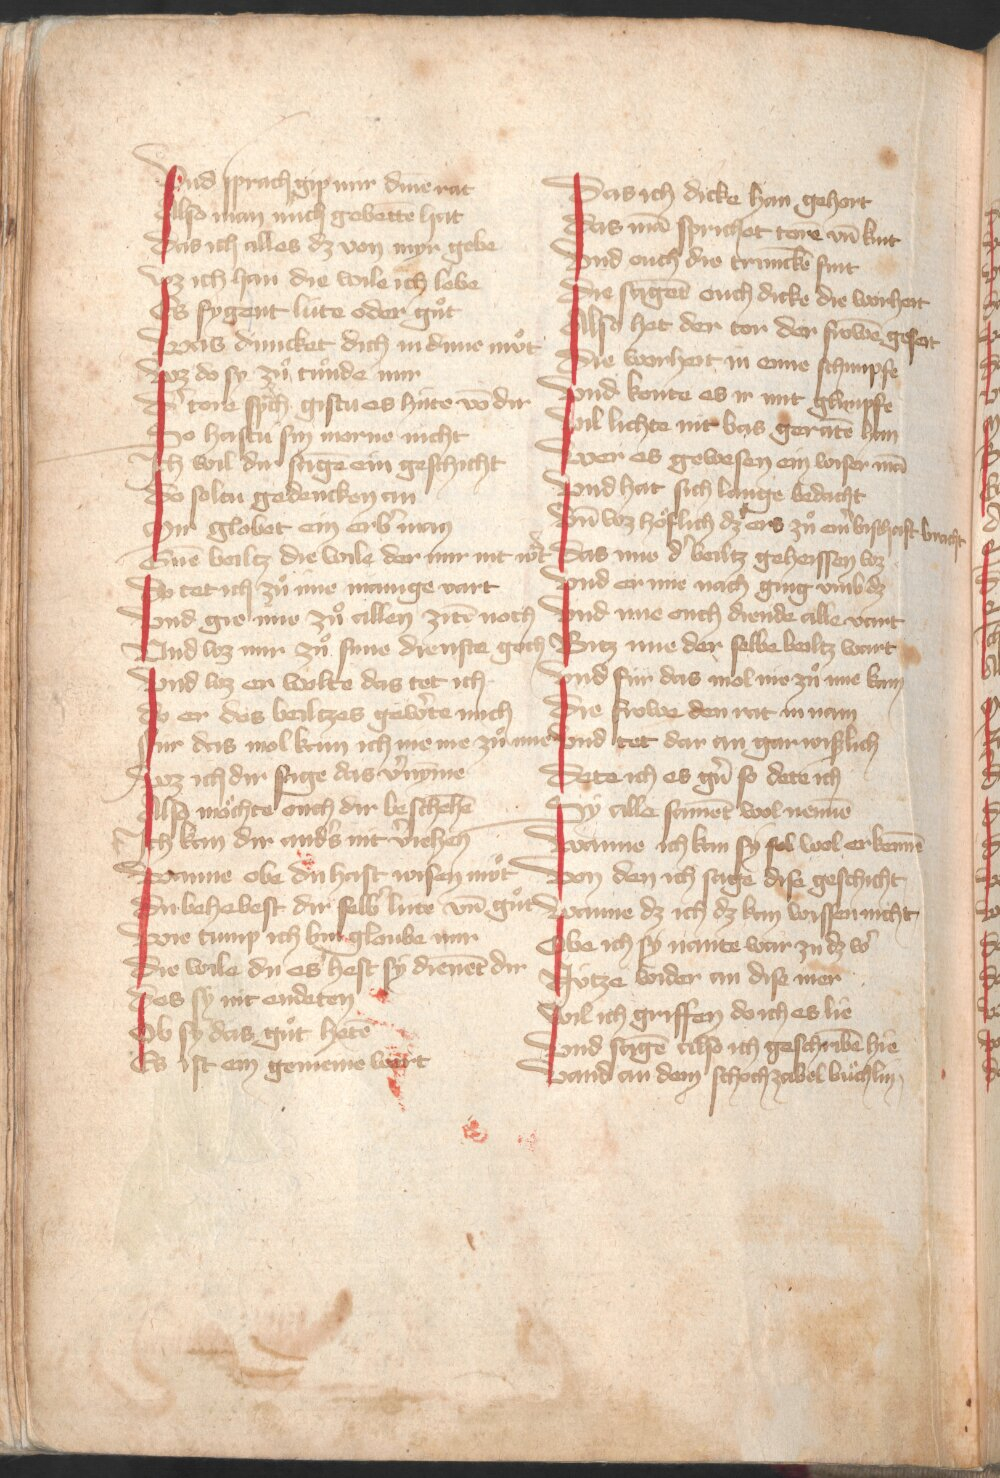 Vnd sprach gip mir dine rat
Also man mich gebettē hat
Das ich alles dz von myr gebe
wz ich han die wile ich lebe
Es sygent lüte oder gůt
Was duncket dich in dime můt
Wz do sy zů tůnde mir
Dʾ tore sp̄ch gistu es hüte vō dir
So hastu sin morne nicht
Ich wil dir sagē ein geschicht
Do soltu gedencken an
Mir globet ein erbʾ man
Eine beiltz die wile der mir nit wʾt
Do tet ich zů ime manige vart
Vnd gie ime zů allen zitē noch
Vnd wz mir zů sime dienste goch
Vnd wz er wolte das tet ich
do er des beiltzes gewʾte mich
Für das mol kam ich nie me zů ime
Wz ich dir sage das vʾnyme
Also möchte ouch dir beschehē
Ich kan dir andʾs nit vʾiehen
Wanne obe du hast wisen můt
Du behebest dir selbʾ lüte vn̄ gůt
Wie tump ich bin gloube mir
Die wile du es hest sy dienēt dir
Des sy nit endeten
Ob sy das gůt hetē
Es ist ein gemeine wort
Das ich dicke han gehort
Das mā sprichet torē vn̄ kint
Vnd ouch die trunckē sint
Die sagēt ouch dicke die worheit
Also het der tor der frowē geseit
Die worheit in eime schimpfe
Vnd konte es ir mit glimpfe
Vil lichte nit bas geratē han
Wer es gewesen ein wiser mā
Vnd hat sich lange bedacht
Vn̄ wz höflich dz ers zů eīʾ bischaft bracht
Das ime dʾ beiltz geheissen wz
Vnd er ime nach ging vmb dz
Vnd ime ouch diende alle vart
Bitz ime der selbe beiltz wart
Vnd für das mol nie zů ime kam
Die frowe den rat in nam
Vnd tet dar an gar wißlich
Dete ich es gʾn so dete ich
Sy alle sament wol nennē
Wanne ich kan sy sol wol erkennē
Von den ich sage dise geschicht
Wanne dz ich dz kan wissen nicht
Obe ich sy nante war zu dz wʾ
Nütze wider an dise mer
Wil ich griffen do ich es lie
Vnd sagē also ich geschribē hie
Vand an dem schochzabel büchlin